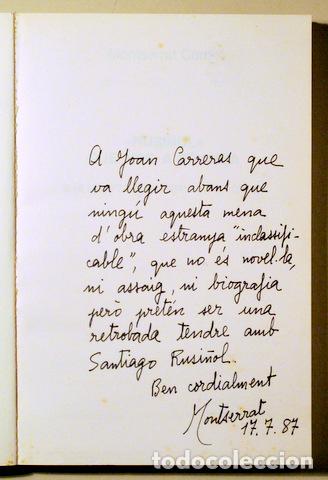 A Joan Carreras que
va llegir abans que
ningú aquesta mena
d'obra estranya "inclassifi-
cable", que no és novel·la,
ni assaig, ni biografia
però pretén ser una
retrobada tendre amb
Santiago Rusiñol.
Ben cordialment
Montserrat
17.7.87
todocoleccion